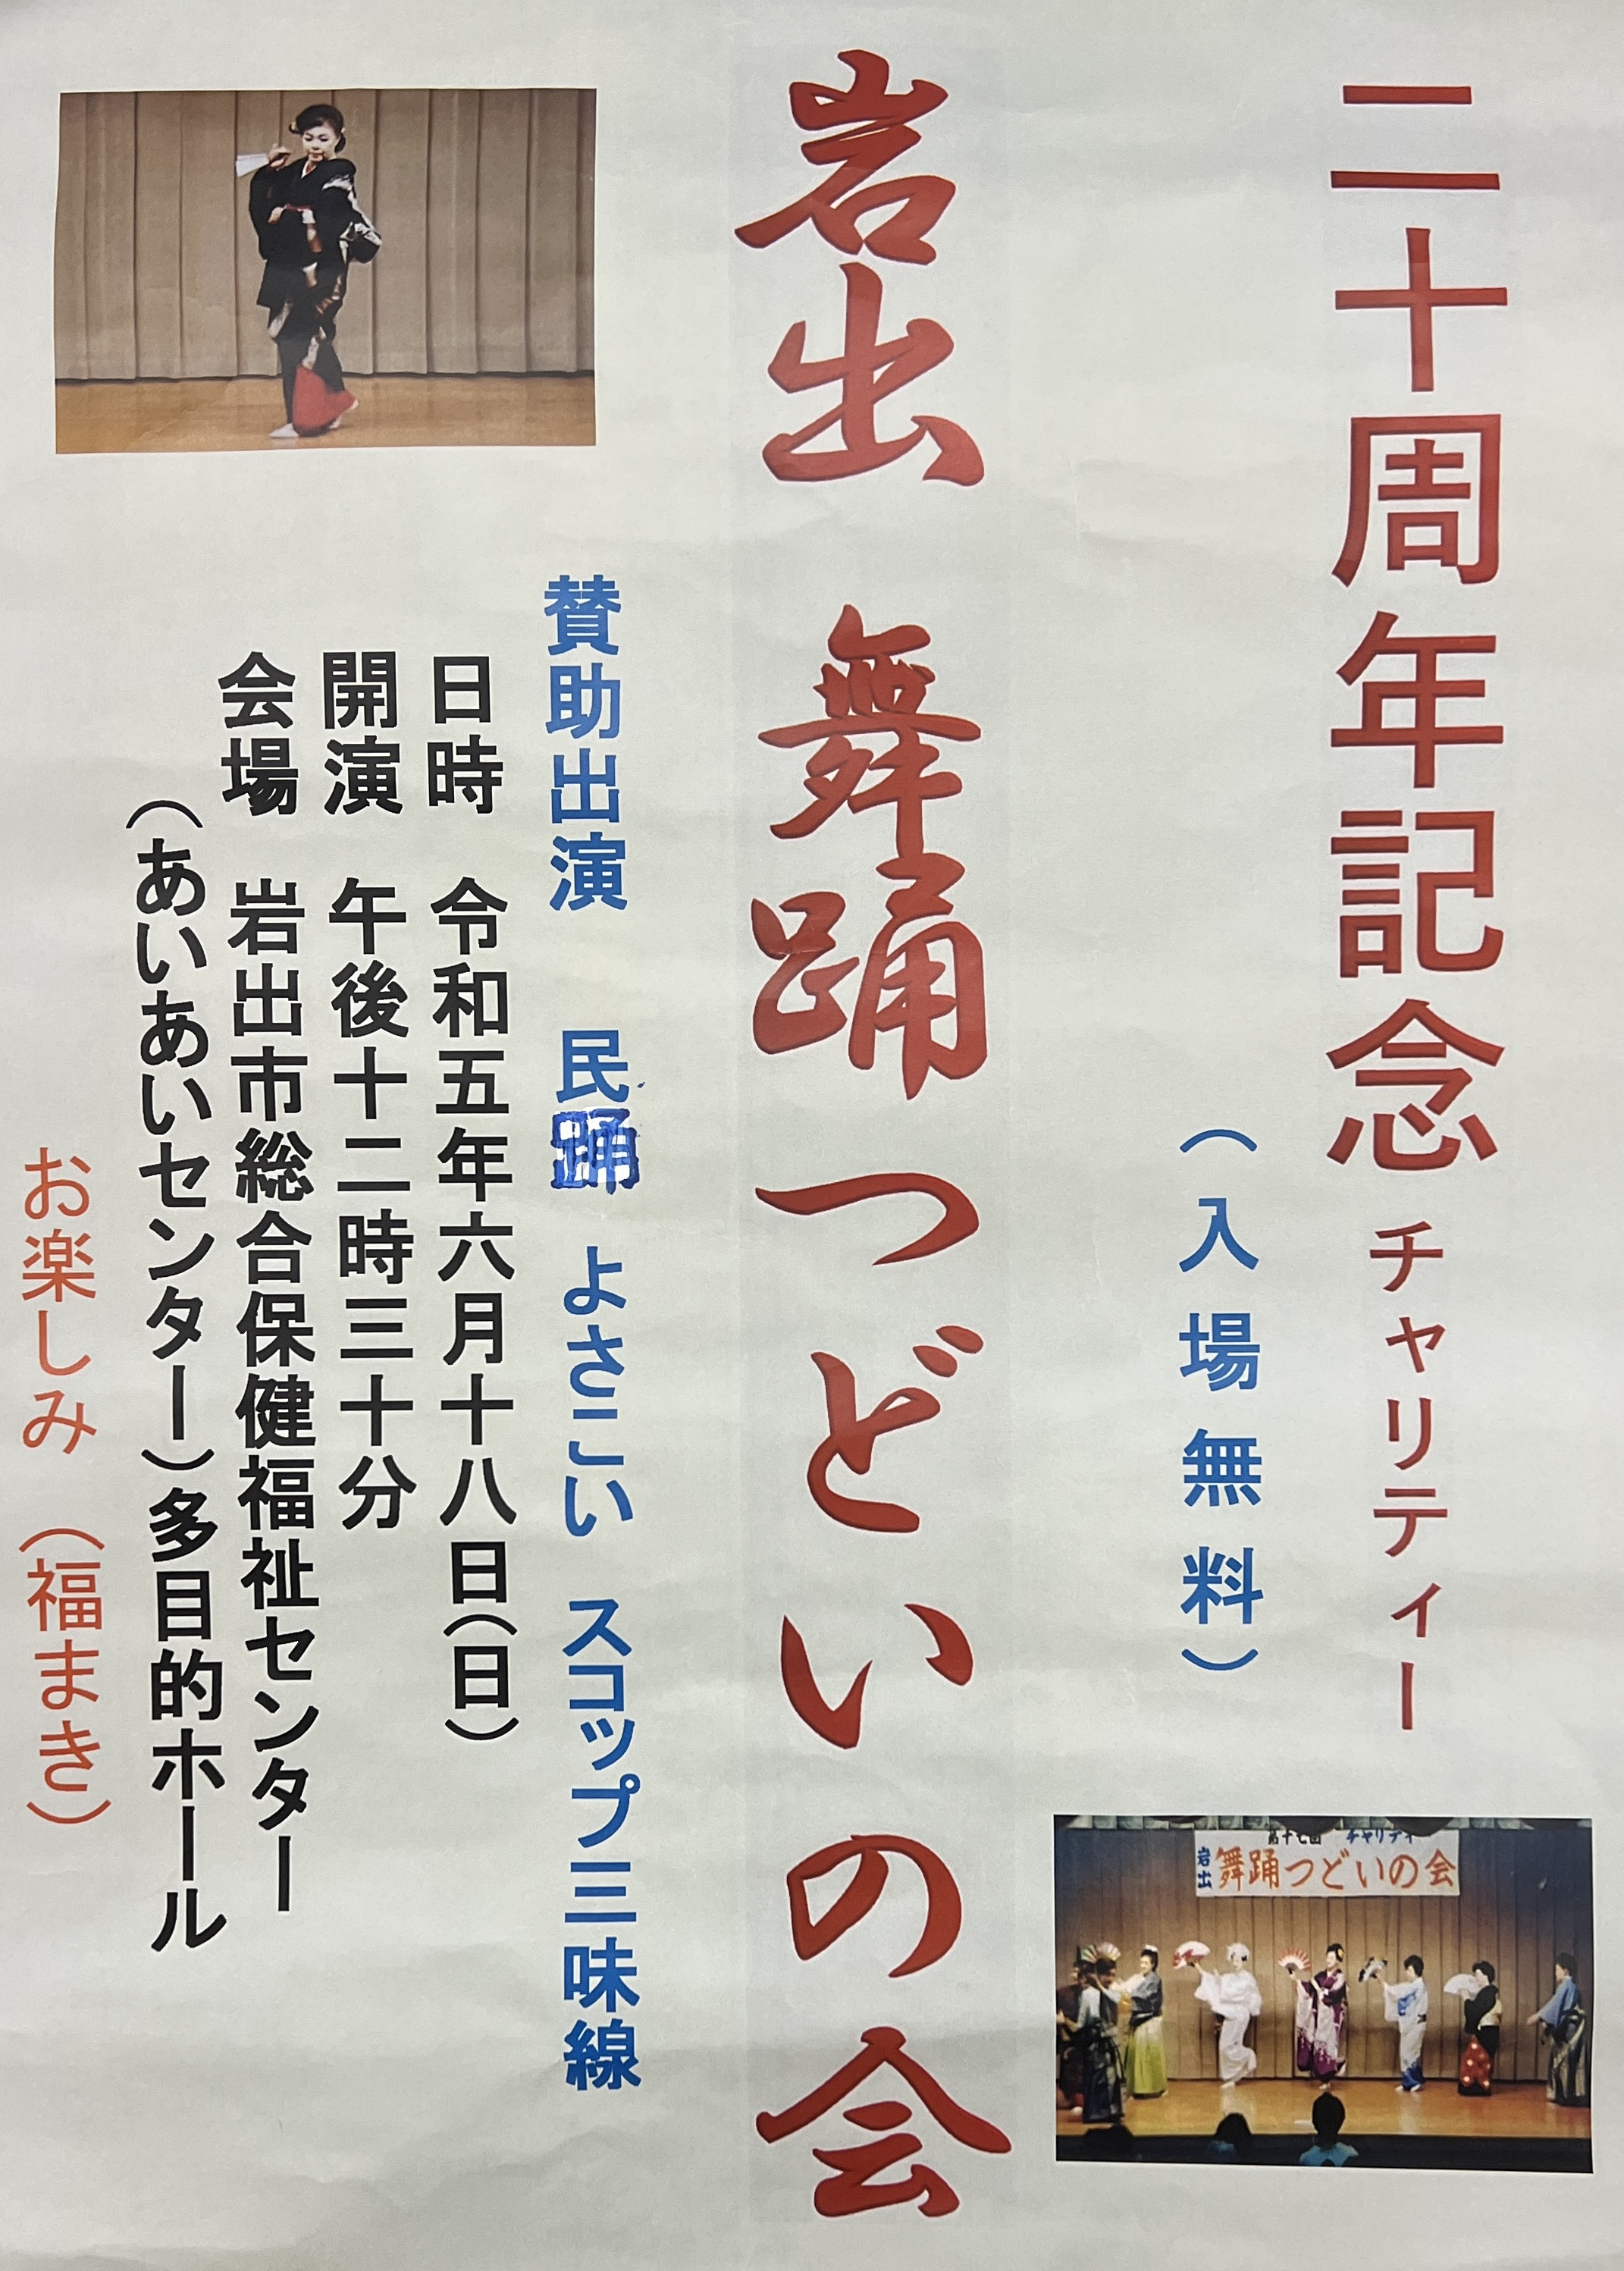 二十周年記念 チャリティー
（入場無料）
岩出 舞踊つどいの会
賛助出演 民踊 よさこい スコップ三味線
日時 令和五年六月十八日（日）
開演 午後十二時三十分
会場 岩出市総合保健福祉センター
（あいあいセンター）多目的ホール
お楽しみ （福まき）
第十七回 チャリティ
岩出 舞踊つどいの会